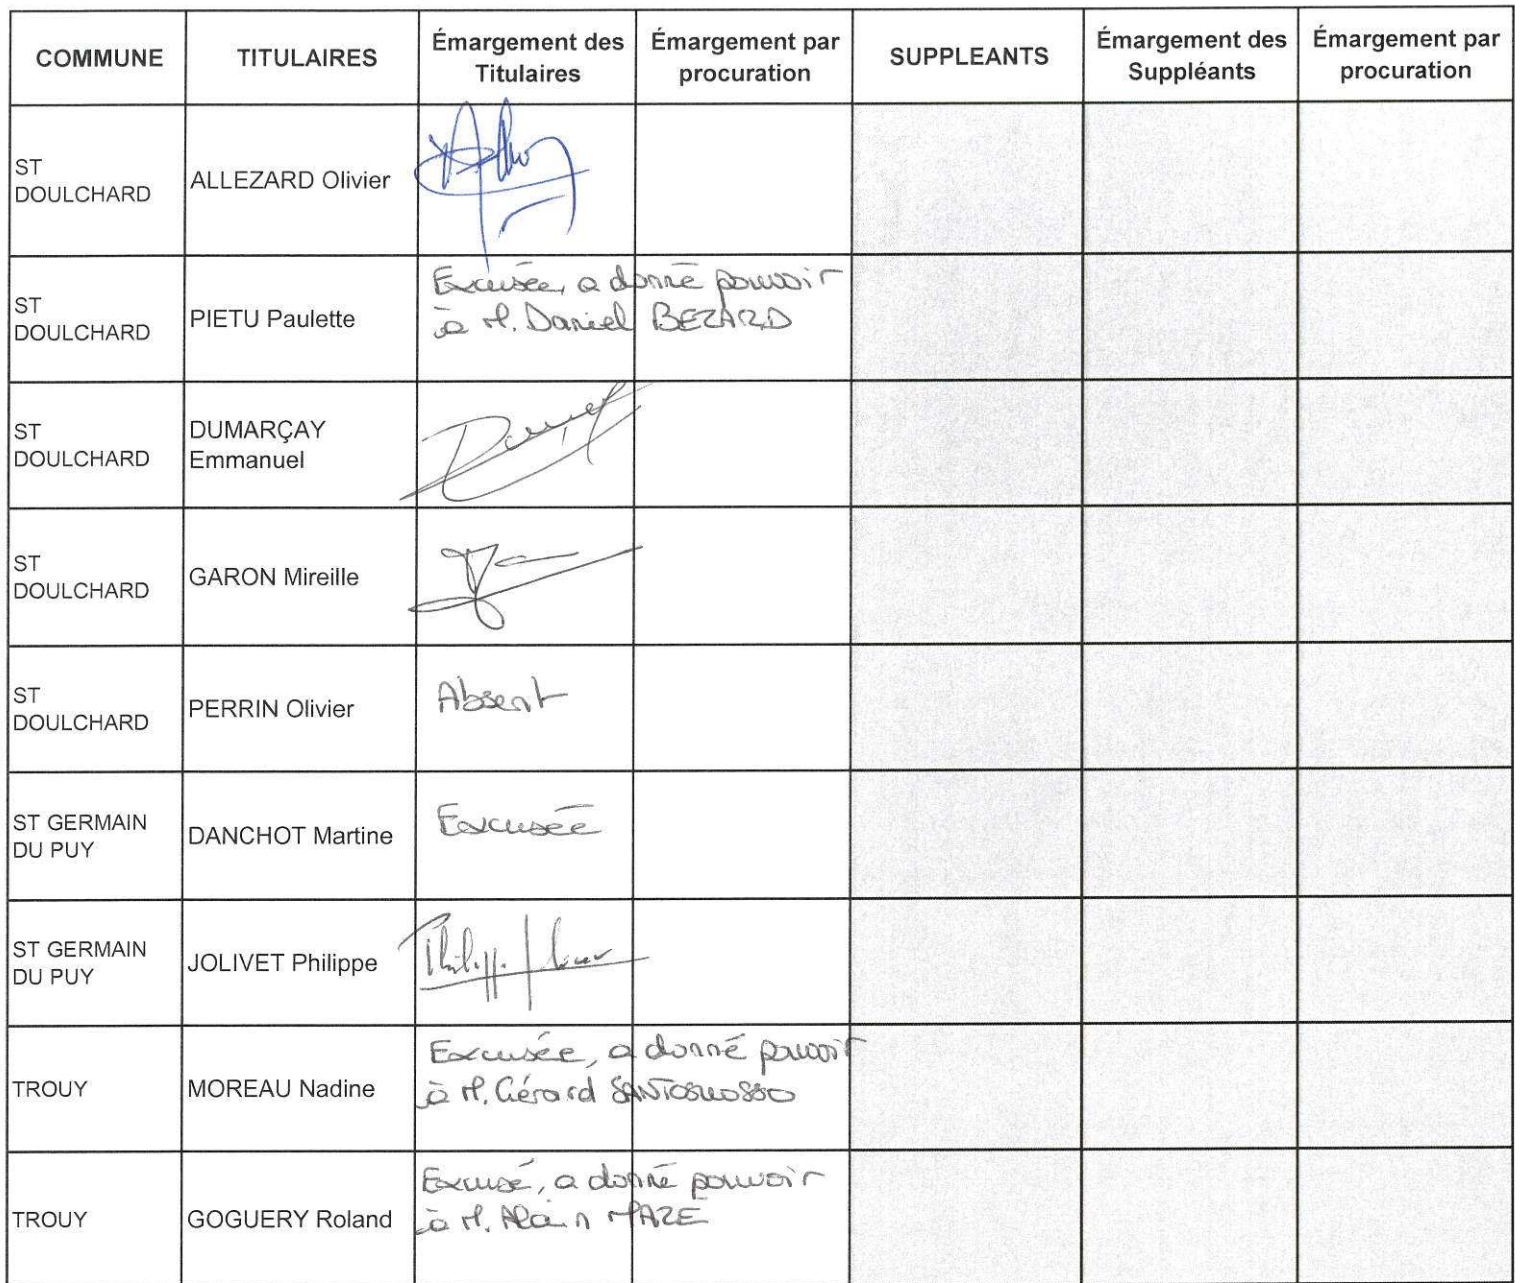 COMMUNE TITULAIRES Émargement des Titulaires Émargement par procuration SUPPLEANTS Émargement des Suppléants Émargement par procuration
ST
DOULCHARD
ALLEZARD Olivier
ST
DOULCHARD
PIETU Paulette
Excusée, a donné pouvoir
à M. Daniel BEZARD
ST
DOULCHARD
DUMARÇAY
Emmanuel
ST
DOULCHARD
GARON Mireille
ST
DOULCHARD
PERRIN Olivier
Absent
ST GERMAIN
DU PUY
DANCHOT Martine
Excusée
ST GERMAIN
DU PUY
JOLIVET Philippe
TROUY
MOREAU Nadine
Excusée, a donné pouvoir
à M. Gérard SANTOSUOSSO
TROUY
GOGUERY Roland
Excusé, a donné pouvoir
à M. Alain MAZE